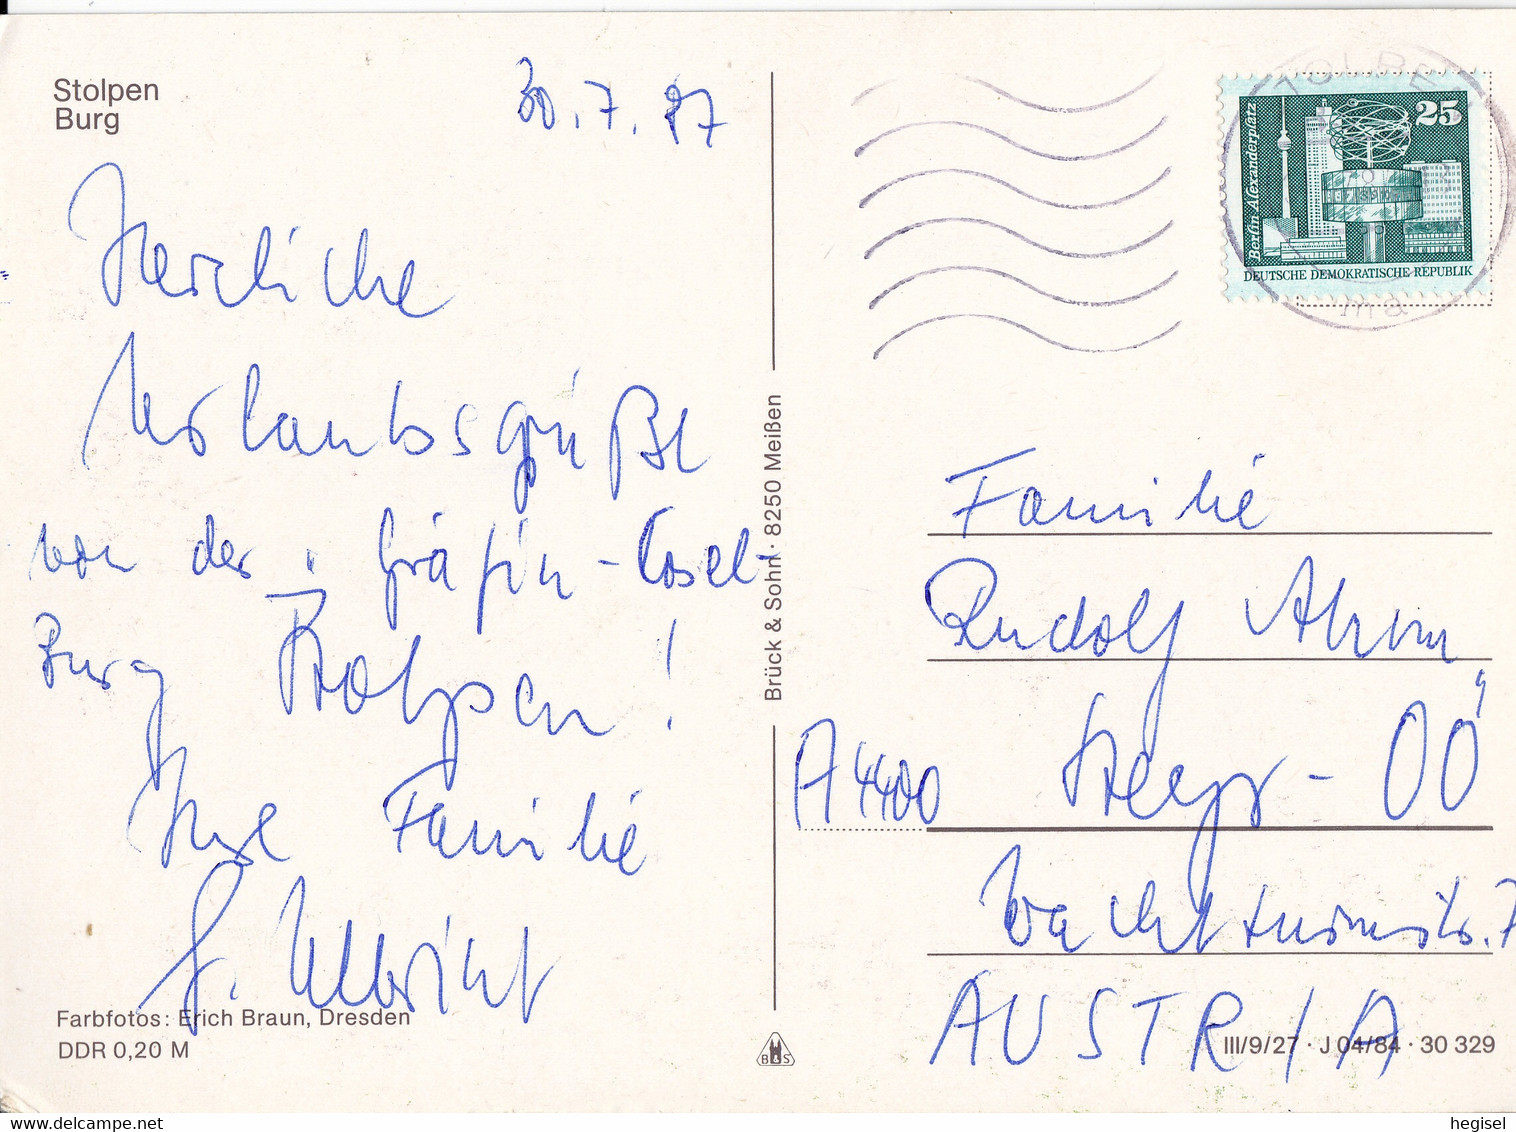 Stolpen
Burg
30.7.87
Herzliche
Urlaubsgrüße
von der "Gräfin-Cosel-
Burg Stolpen!
Ihre Familie
G. Ulbricht
Farbfotos: Erich Braun, Dresden
DDR 0,20 M
Brück & Sohn · 8250 Meißen
B&S
25
Berlin-Alexanderplatz
DEUTSCHE DEMOKRATISCHE REPUBLIK
Familie
Rudolf
A 4400 Steyr - OÖ
Wachtturmstr. 7
AUSTRIA
III/9/27 · J 04/84 · 30 329
hegisel